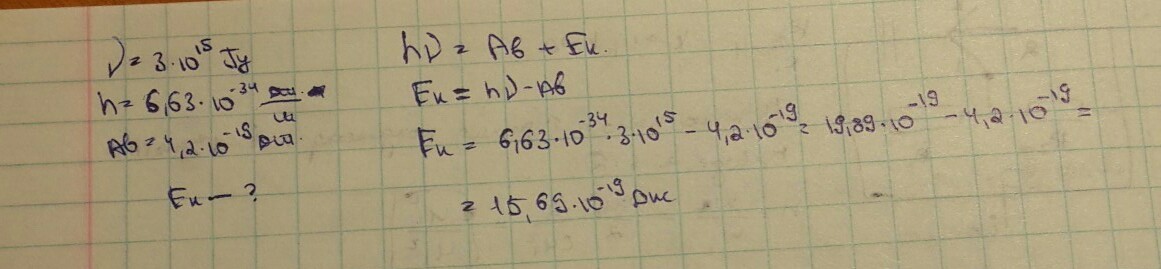 ν = 3·10¹⁵ Гц
h = 6,63·10⁻³⁴
Aв = 4,2·10⁻¹⁹ Дж.
Eк — ?
hν = Aв + Eк.
Eк = hν - Aв
Eк = 6,63·10⁻³⁴·3·10¹⁵ - 4,2·10⁻¹⁹ = 19,89·10⁻¹⁹ - 4,2·10⁻¹⁹ =
= 15,69·10⁻¹⁹ Дж